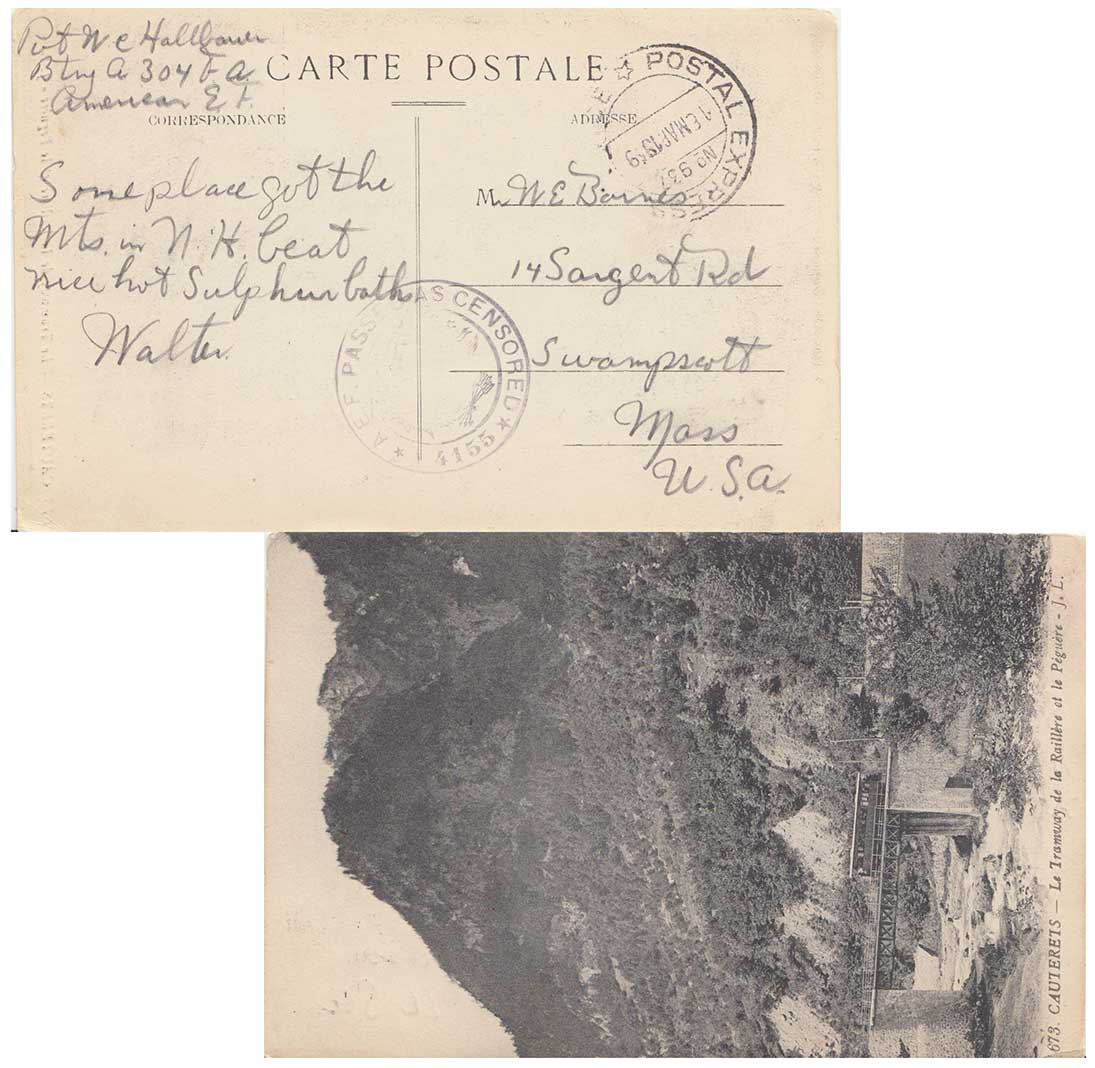 Pvt W C Hallbauer
Btry A 304 F. A.
American E. F.
CARTE POSTALE
CORRESPONDANCE
ADRESSE
POSTAL EXPRESS
No. 937
Some place got the
Mts. in N. H. beat
nice hot Sulphur baths
Walter.
Mr W E Barnes
14 Sargent Rd
Swampscott
Mass
U.S.A.
A.E.F. PASSED AS CENSORED
4155
673. CAUTERETS — Le Tramway de la Raillère et le Péguère - J. L.